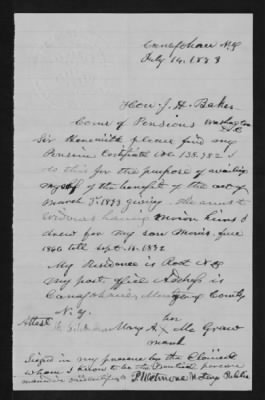 Canajoharie N.Y
July 14. 1873
Hon. J. H. Baker
Comr of Pensions Washington
D.C
Sir Herewith please find my
Pension Certificate No. 138.982 I
do this for the purpose of availing
myself of the benefit of the act of
March 3d 1873 giving the amt to
widows having minor
drew for my son
1866 till Sept. 14. 1872
My Residence is Root N.Y
my post office Address is
Canajoharie, Montgomery County
N.Y.
her
Attest Mary A. X Mc Graw
mark
Signed in my presence by the Claimant
whom I know to be the identical person
Notary Public